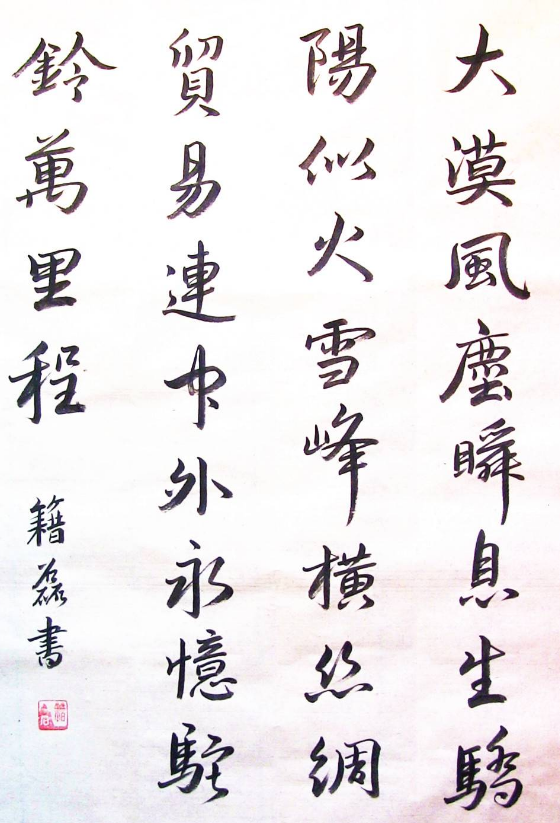 大漠風塵瞬息生驕
陽似火雪峰橫絲綢
貿易連中外永憶駝
鈴萬里程
籍磊書